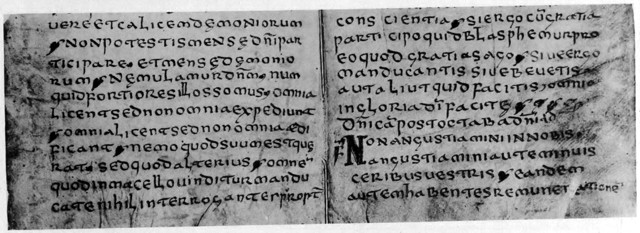 uere et calicem demoniorum
Non potestis mensę dni par
ticipare · et mensę demonio
rum Nemulamur dnm · num
quid fortiores illos somus · omnia
licent sed non omnia expediunt
omnia licent sed non omnia edi
ficant · nemo quod suum est que
rat · sed quod alterius omne
quod in macello uinditur mandu
cate nihil interrogantes propt
cons cientia si ergo cū gratia
participo quid blasphemur pro
eo quod gratias ago siue ergo
manducantis siue beuetis
aut aliut quid facitis
in gloria dī facite
Dnica post octaba dni
Non angustiamini in nobis
angustiamini autem in uis
ceribus uestris eandem
autem habentes remuneratione